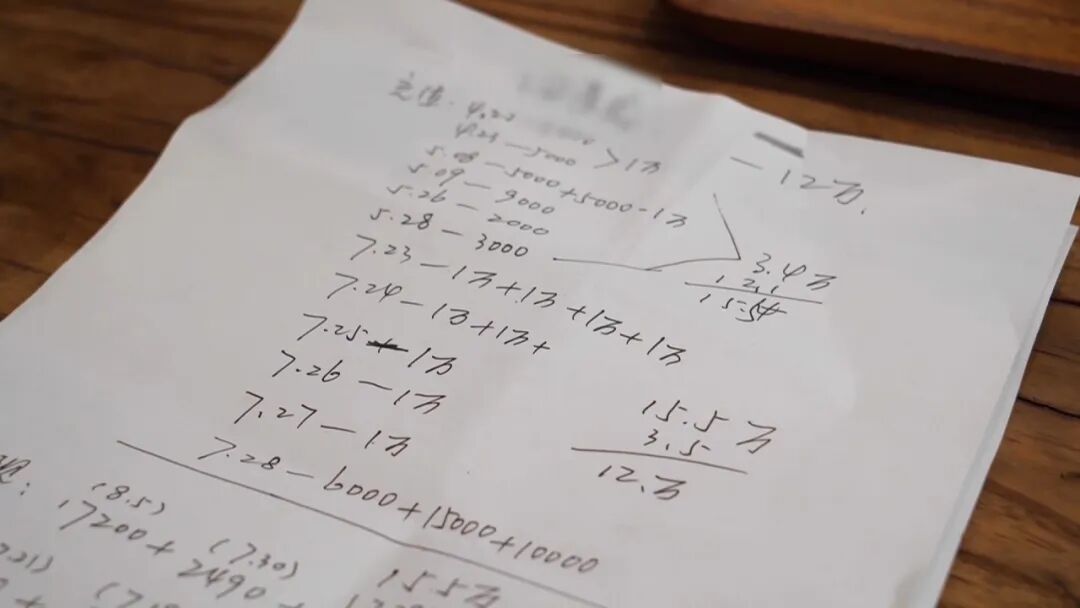 充值: 4.23
4.24 — 5000 > 1万
— 12万.
5.08 — 5000+5000-1万
5.09 — 9000
5.26 — 2000
5.28 — 3000
3.4万
12.1
15.5
7.23 — 1万+1万+1万+1万
7.24 — 1万+1万+
7.25 1万
7.26 — 1万
7.27 — 1万
7.28 — 6000+15000+10000
15.5万
3.5
12.万
(8.5) (7.30)
17200+2490+
15.5万